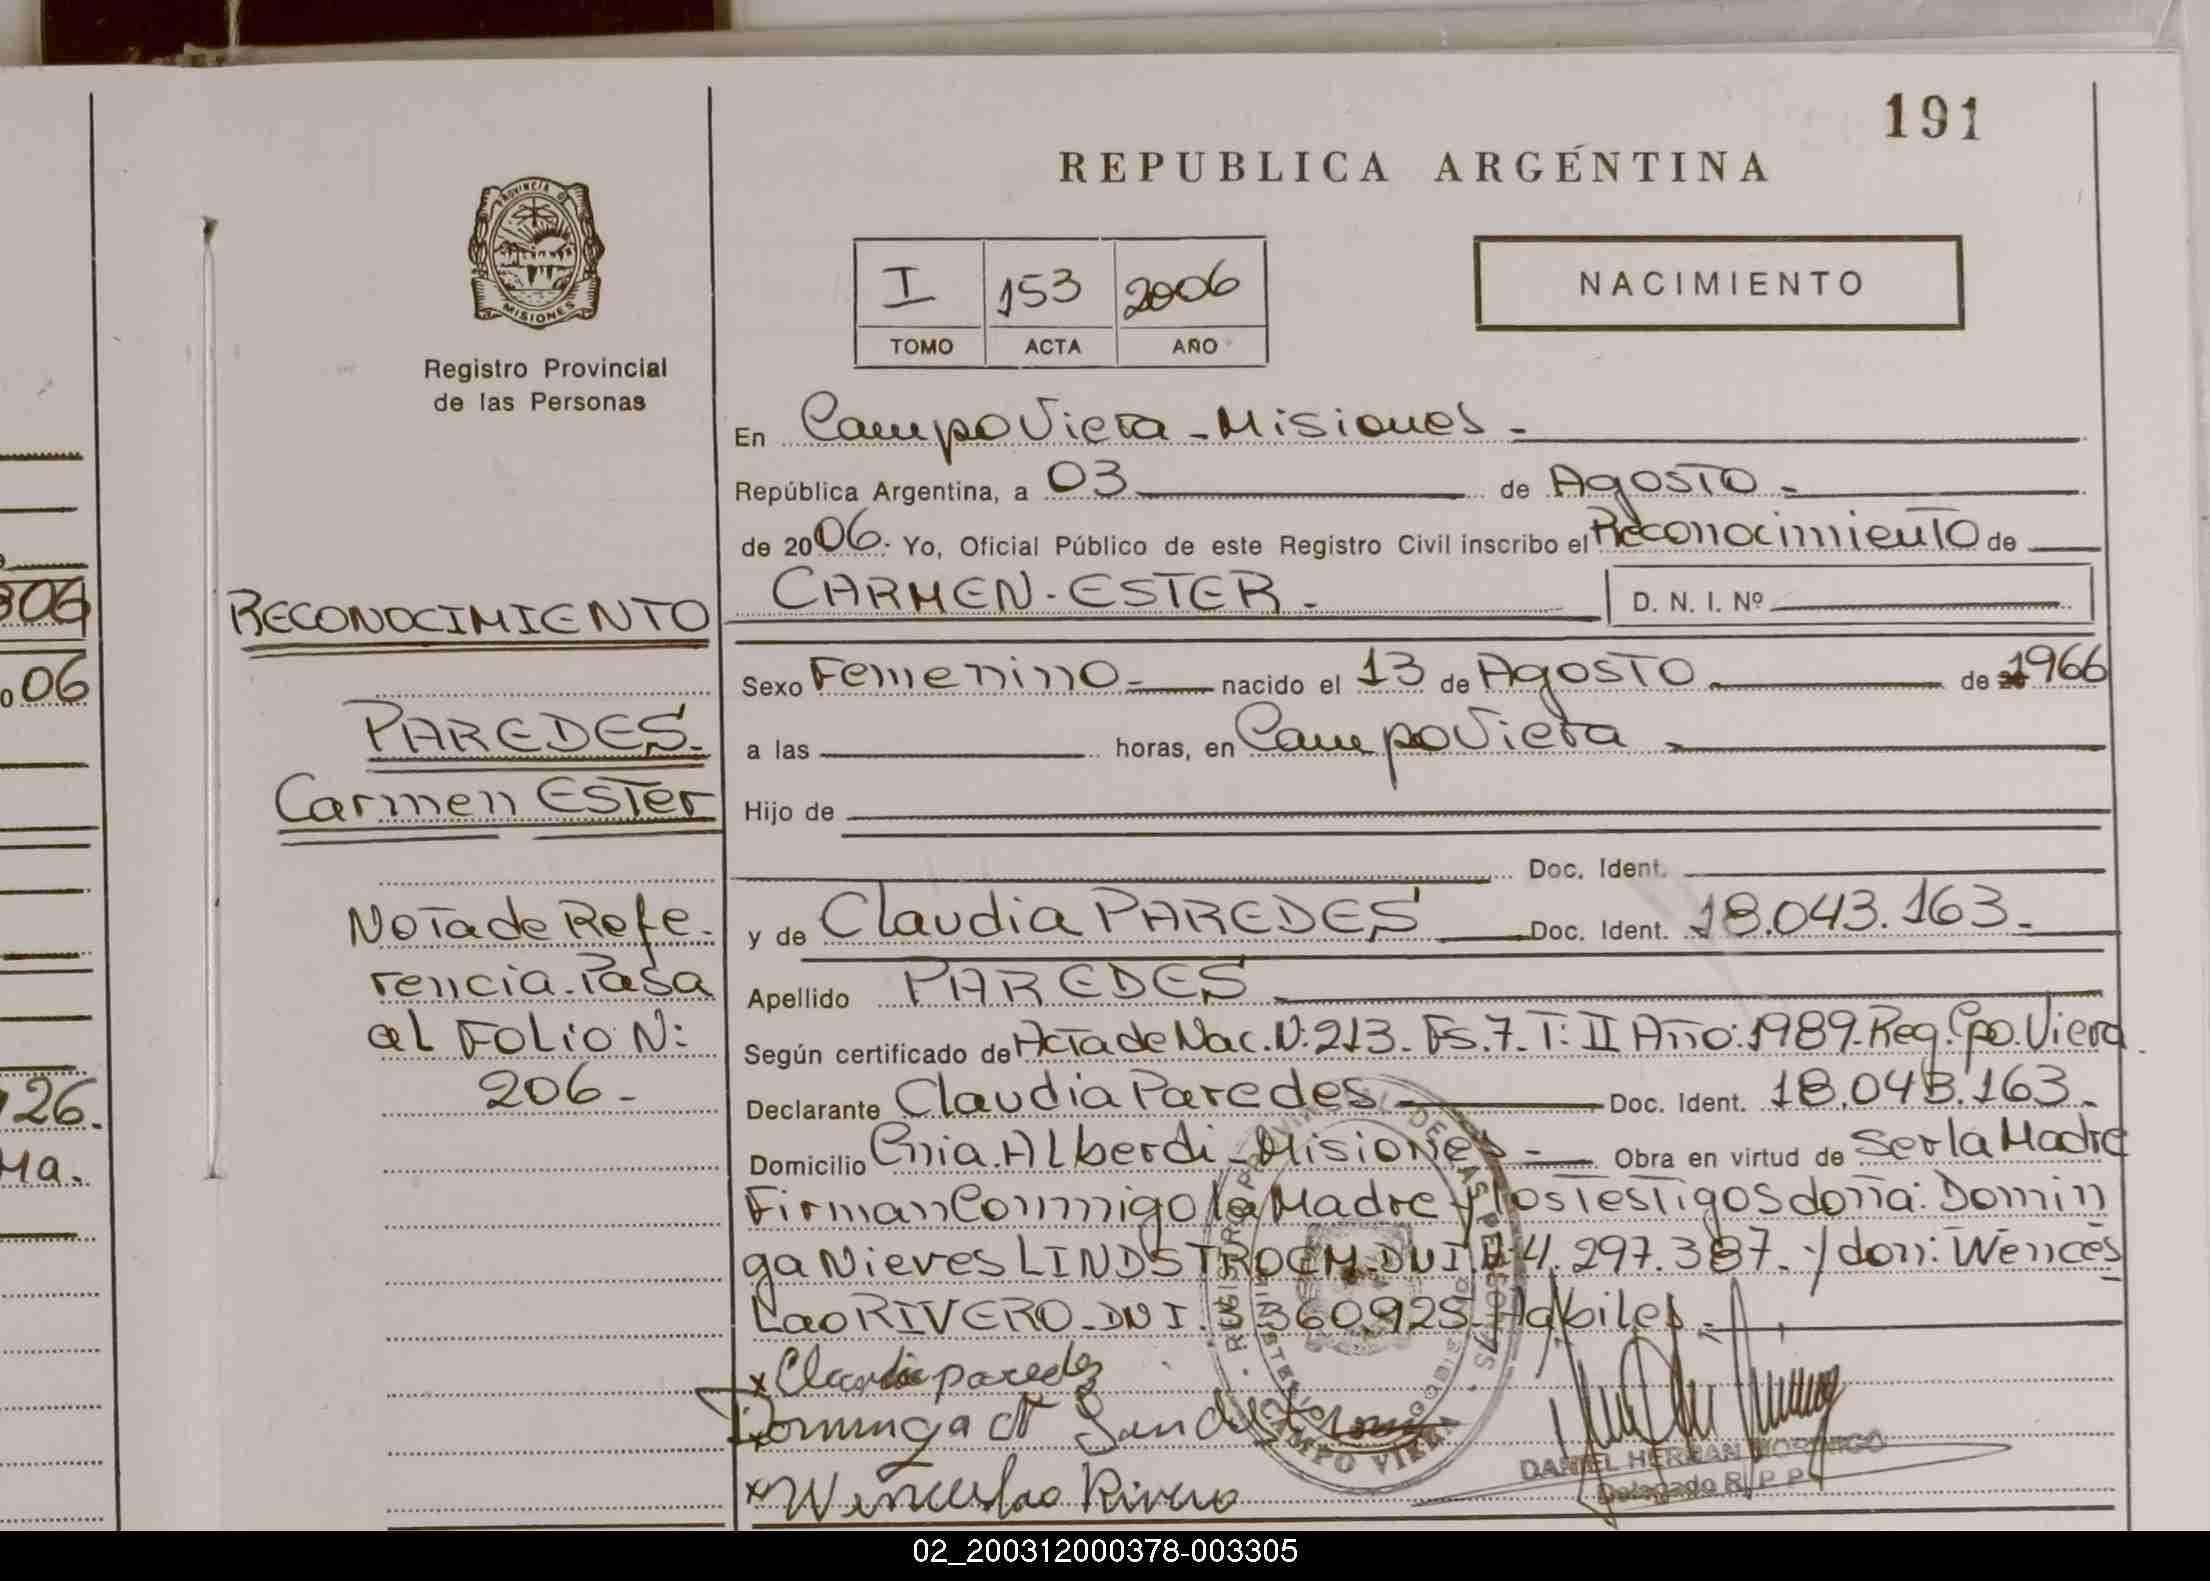 191
REPUBLICA ARGENTINA
PROVINCIA DE
MISIONES
Registro Provincial
de las Personas
I 153 2006
TOMO ACTA AÑO
NACIMIENTO
En Campo Viera - Misiones -
República Argentina, a 03 de Agosto -
de 2006. Yo, Oficial Público de este Registro Civil inscribo el Reconocimiento de
CARMEN - ESTER - D. N. I. Nº
RECONOCIMIENTO
Sexo Femenino - nacido el 13 de Agosto de 1966
PAREDES -
a las horas, en Campo Viera -
Carmen Ester
Hijo de
Doc. Ident.
Nota de Refe-
y de Claudia PAREDES Doc. Ident. 18.043.163 -
rencia. Pasa
Apellido PAREDES
al Folio N:
Según certificado de Acta de Nac. N: 213 - Fs. 7 - T: II Año: 1989 - Reg. Cpo. Viera.
206 -
Declarante Claudia Paredes Doc. Ident. 18.043.163 -
Domicilio Cnia. Alberdi - Misiones - Obra en virtud de Ser la Madre
Firman Conmigo la Madre y los Testigos doña: Domin
ga Nieves LINDSTROEM - DNI. 4.297.387 - y don: Wences
Lao RIVERO - DNI. 3360.925 - Habiles -
x Claudia paredes
Dominga N
x Wenceslao Rivero
CAMPO VIERA
DANIEL HERNAN MORINIGO
Delegado R. P. P.
306
06
126.
Ma.
02_200312000378-003305